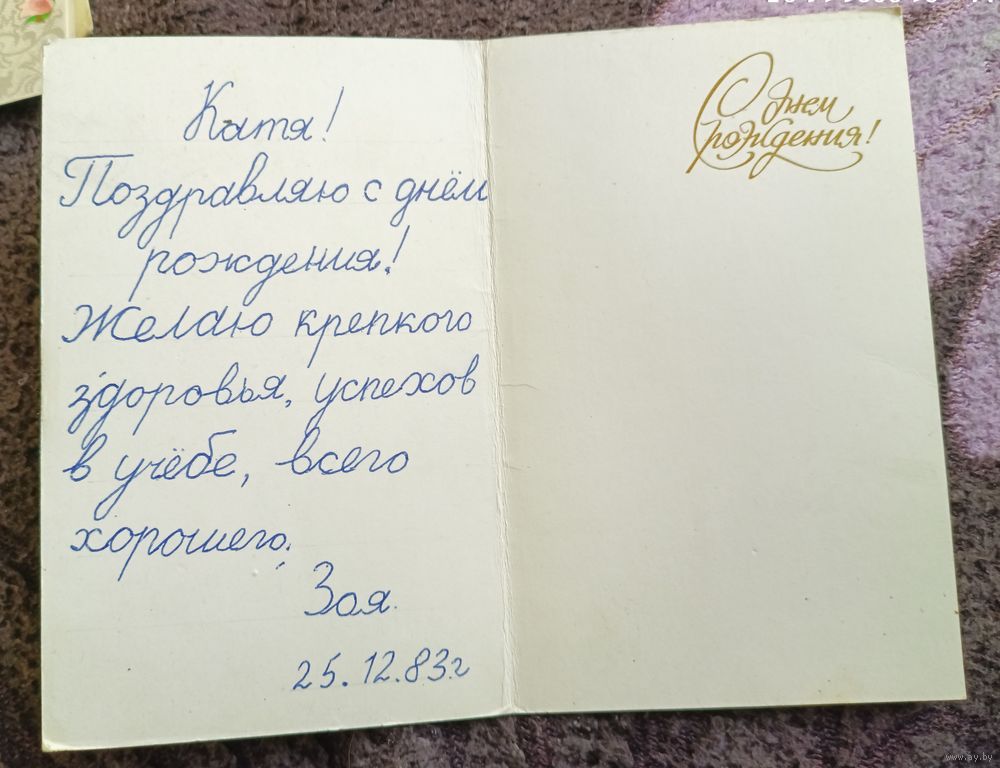 Катя!
Поздравляю с днём
рождения!
Желаю крепкого
здоровья, успехов
в учёбе, всего
хорошего.
Зоя.
25.12.83г
С днем
рождения!
www.ay.by